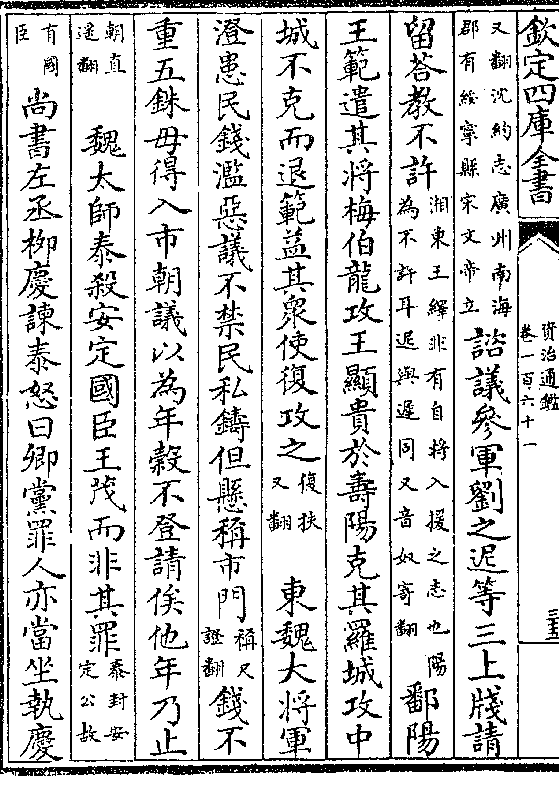 欽定四庫全書
資治通鑑
卷一百六十一
三十五
又翻沈約志廣州南海郡有綏寧縣宋文帝立諮議參軍劉之遟等三上牋請
留荅教不許湘東王繹非有自將入援之志也陽為不許耳遟與遲同又音奴寄翻鄱陽
王範遣其將梅伯龍攻王顯貴於壽陽克其羅城攻中
城不克而退範益其衆使復攻之復扶又翻東魏大將軍
澄患民錢濫惡議不禁民私鑄但懸稱市門稱尺證翻錢不
重五銖毋得入市朝議以為年榖不登請俟他年乃止
朝直遥翻魏太師泰殺安定國臣王茂而非其罪泰封安定公故
有國臣尚書左丞栁慶諫泰怒曰卿黨罪人亦當坐執慶